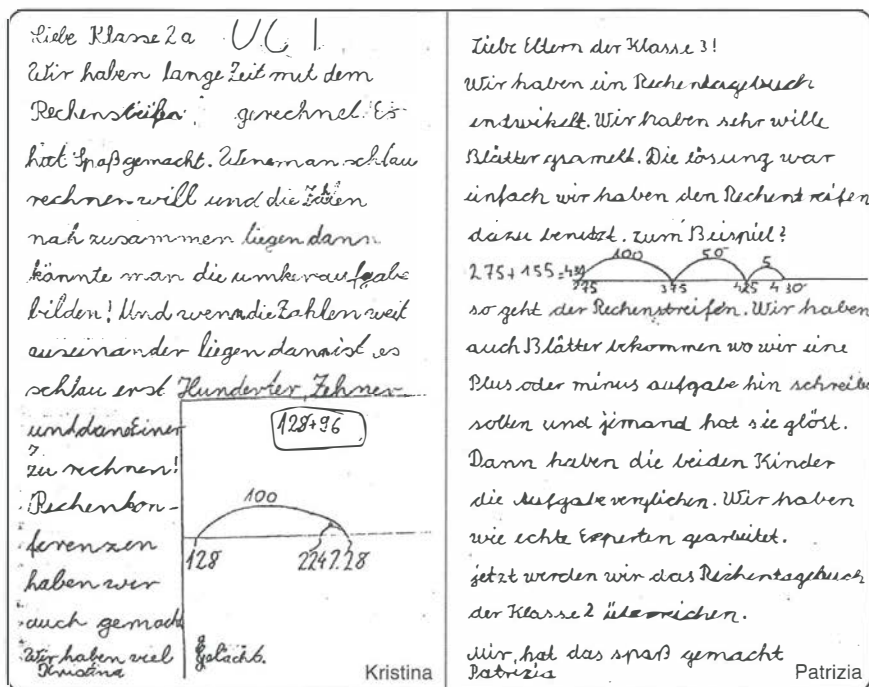 Liebe Klasse 2a UCI
Wir haben lange Zeit mit dem
Rechenstreifen gerechnet. Es
hat Spaß gemacht. Wenn man schlau
rechnen will und die Zahlen
nah zusammen liegen dann
könnte man die umkeraufgabe
bilden! Und wenn die Zahlen weit
auseinander liegen dann ist es
schlau erst Hunderter, Zehner
und dan Einer
zu rechnen!
Rechenkon-
ferenzen
haben wir
auch gemacht
Wir haben viel Gelacht.
Kristina
128+96
100
128 224 228
Kristina
Liebe Eltern der Klasse 3!
Wir haben ein Rechentagebuch
entwikelt. Wir haben sehr wille
Blätter gsamelt. Die lösung war
einfach wir haben den Rechentreifen
dazu benutzt. zum Beispiel?
100 50 5
275+155=430
275 375 425 430
so geht der Rechenstreifen. Wir haben
auch Blätter bekommen wo wir eine
Plus oder minus aufgabe hin schreibe
solten und jemand hat sie glöst.
Dann haben die beiden Kinder
die Aufgabe verglichen. Wir haben
wie echte Experten gearbeitet.
jetzt werden wir das Rechentagebuch
der Klasse 2 überreichen.
Mir hat das spaß gemacht
Patrizia
Patrizia